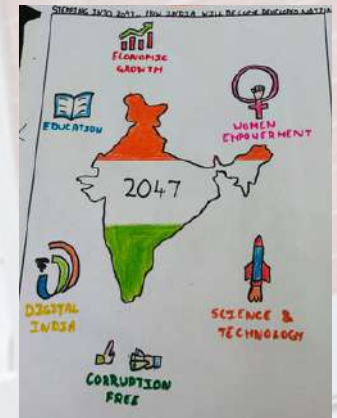 STEPPING INTO 2047... HOW INDIA WILL BECOME DEVELOPED NATION
ECONOMIC
GROWTH
EDUCATION
WOMEN
EMPOWERMENT
2047
DIGITAL
INDIA
SCIENCE &
TECHNOLOGY
CORRUPTION
FREE